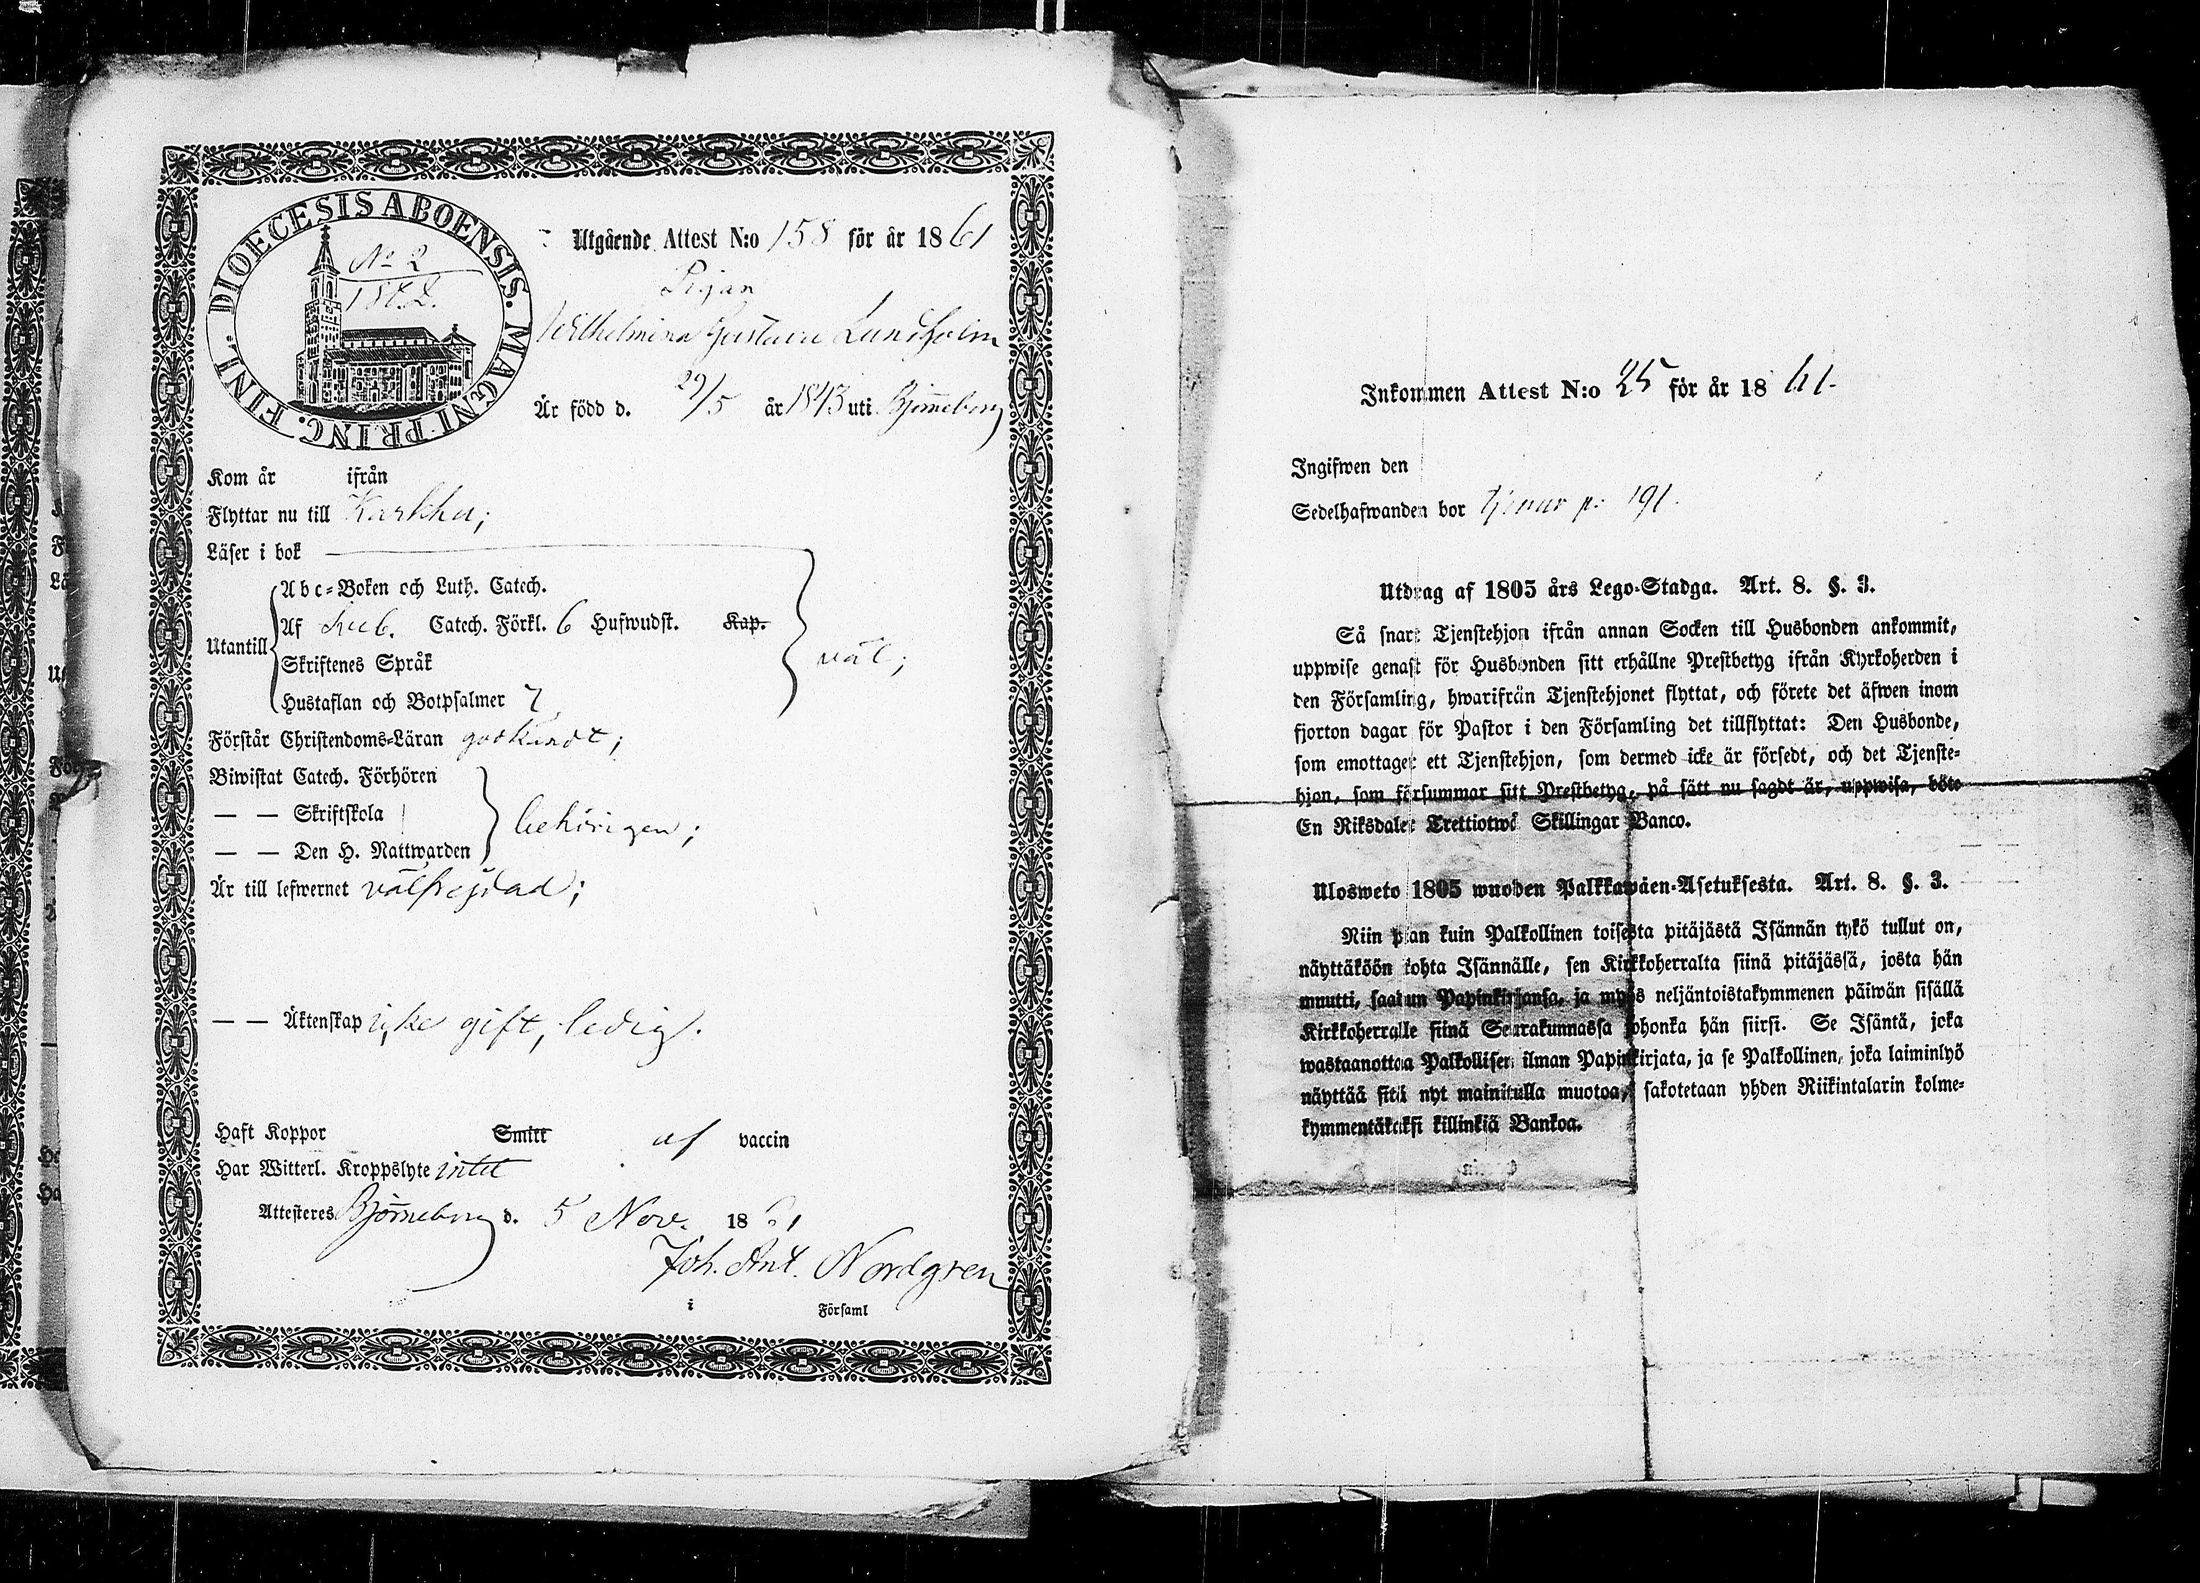 DIOECESIS ABOENSIS. MAGNI PRINC. FINL.
No 2
1862.
Utgående Attest N:o 158 för år 1861
Pigan
Wilhelmina Gustava Lundholm
Är född d. 29/5 år 1843 uti Björneborg
Kom år ifrån
Flyttar nu till Karkku;
Läser i bok
Utantill
Abc-Boken och Luth. Catech.
Af Sveb. Catech. Förkl. 6 Hufwudst. Kap.
Skriftenes Språk
Hustaflan och Botpsalmer 7
väl;
Förstår Christendoms-Läran godkändt;
Biwistat Catech. Förhören
— — Skriftskola
— — Den H. Nattwarden
behörigen;
Är till lefwernet välfrejdad;
— — Äktenskap icke gift, ledig.
Haft Koppor Smitt af vaccin
Har Witterl. Kroppslyte intet
Attesteres Björneborg d. 5 Nov. 1861
Joh. Ant. Nordgren
i Församl
Inkommen Attest N:o 25 för år 1861.
Ingifwen den
Sedelhafwanden bor tjenar p: 191.
Utdrag af 1805 års Lego-Stadga. Art. 8. §. 3.
Så snart Tjenstehjon ifrån annan Socken till Husbonden ankommit,
uppwise genast för Husbonden sitt erhållne Prestbetyg ifrån Kyrkoherden i
den Församling, hwarifrån Tjenstehjonet flyttat, och förete det äfwen inom
fjorton dagar för Pastor i den Församling det tillflyttat: Den Husbonde,
som emottager ett Tjenstehjon, som dermed icke är försedt, och det Tjenste-
hjon, som försummar sitt Prestbetyg, på sätt nu sagdt är, uppwisa, böte
En Riksdaler Trettiotwå Skillingar Banco.
Ulosweto 1805 wuoden Palkkawäen-Asetuksesta. Art. 8. §. 3.
Niin pian kuin Palkollinen toisesta pitäjästä Isännän tykö tullut on,
näyttäköön kohta Isännälle, sen Kirkkoherralta siinä pitäjässä, josta hän
muutti, saadun Papinkirjansa, ja myös neljäntoistakymmenen päiwän sisällä
Kirkkoherralle siinä Seurakunnassa johonka hän siirsi. Se Isäntä, joka
wastaanottaa Palkollisen ilman Papinkirjata, ja se Palkollinen, joka laiminlyö
näyttää sitä nyt mainitulla muotoa, sakotetaan yhden Riikintalarin kolme-
kymmentäkaksi killinkiä Bankoa.